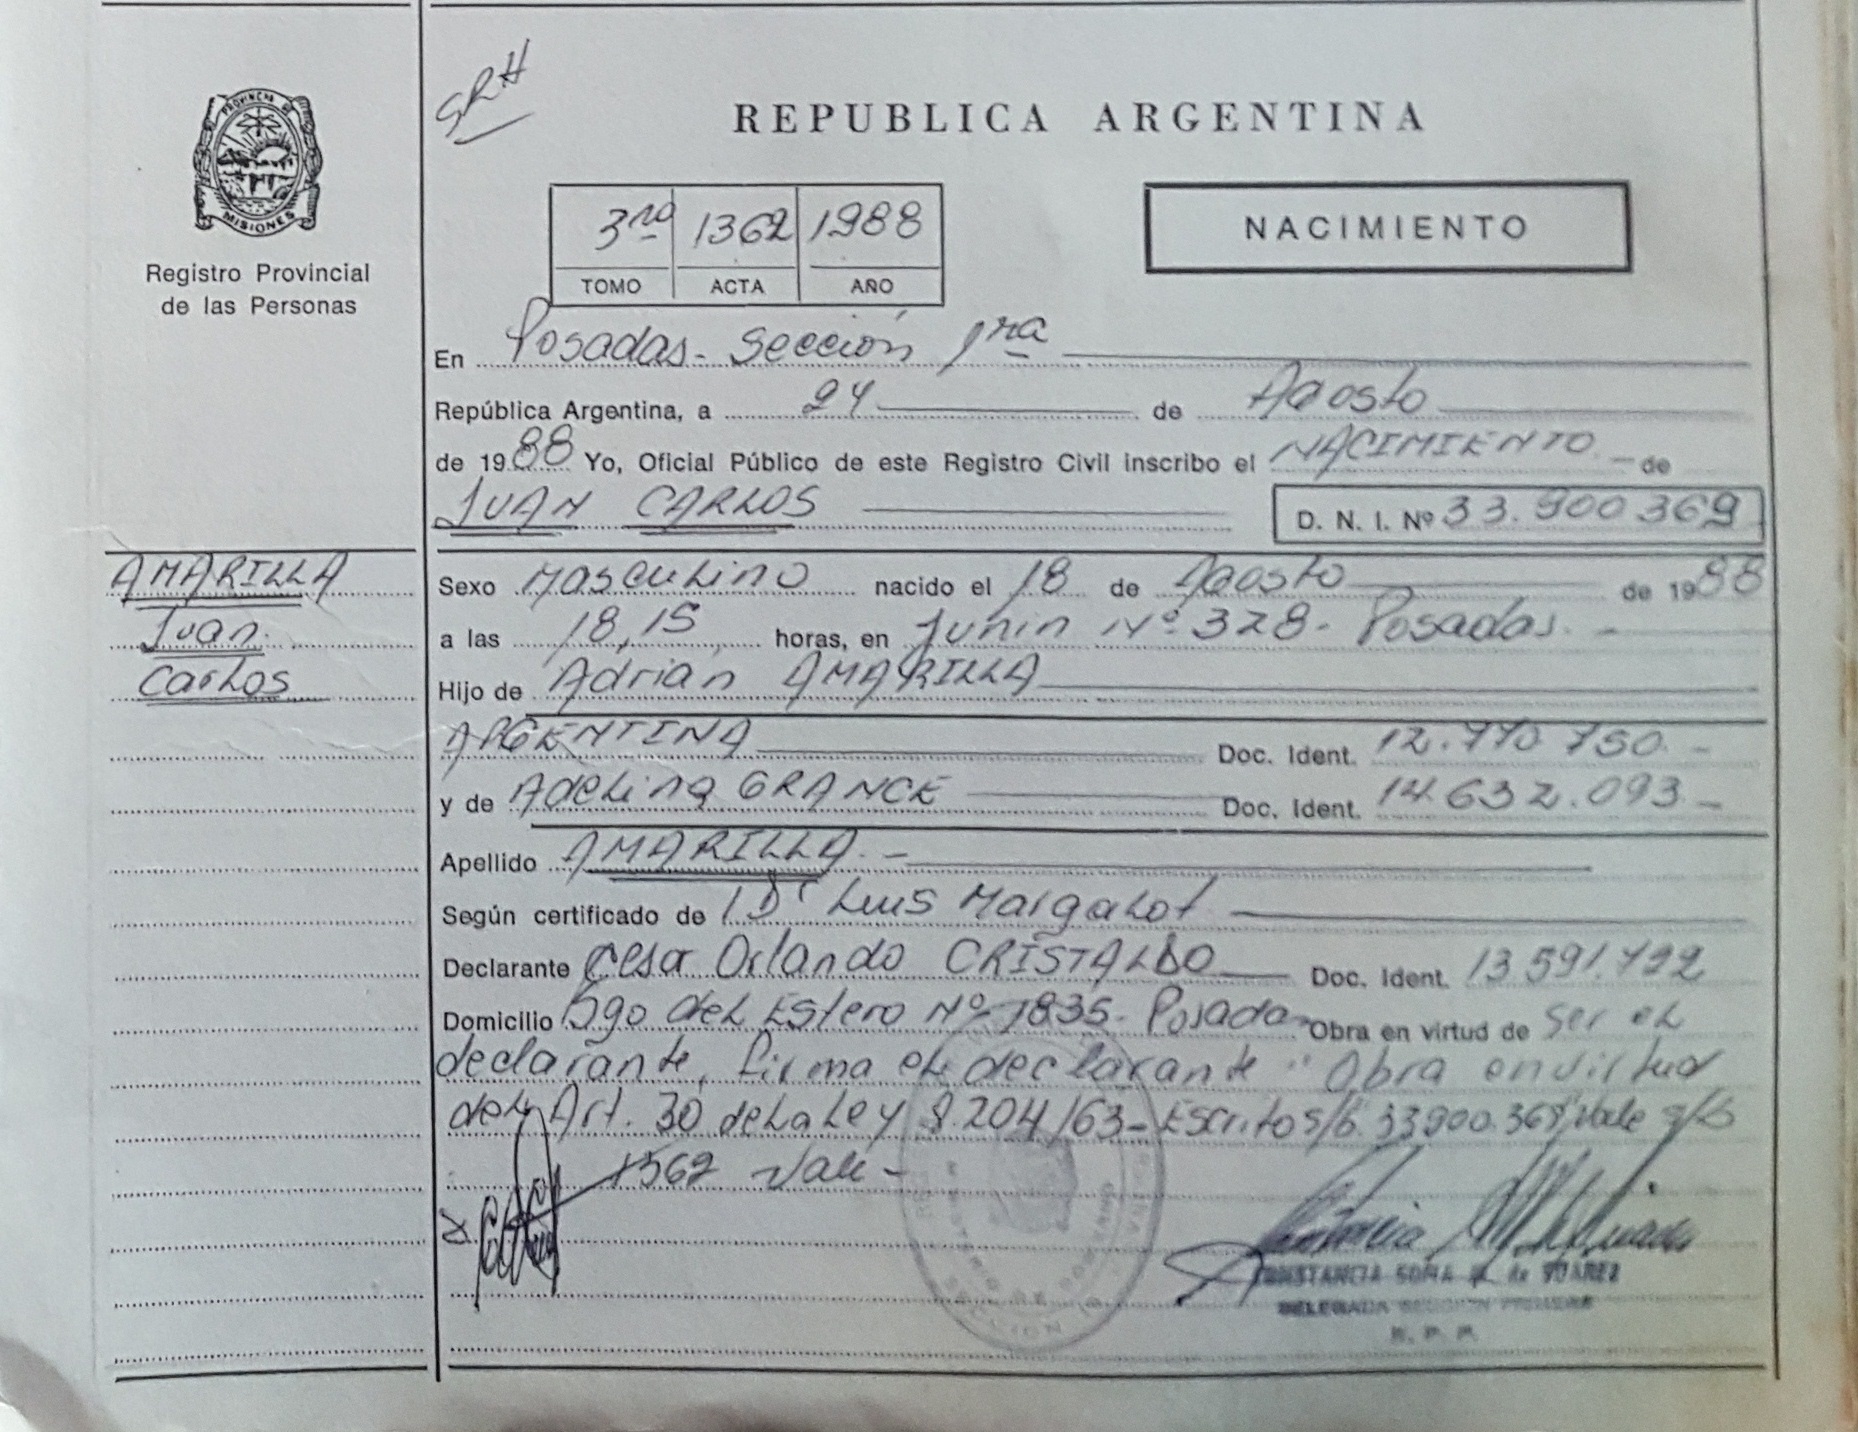 SRH
PROVINCIA DE
MISIONES
Registro Provincial
de las Personas
REPUBLICA ARGENTINA
3ro 1362 1988
TOMO ACTA AÑO
NACIMIENTO
En Posadas - Sección 1ra
República Argentina, a 24 de Agosto
de 1988 Yo, Oficial Público de este Registro Civil inscribo el NACIMIENTO de
JUAN CARLOS D. N. I. Nº 33.900369
AMARILLA
Juan
Carlos
Sexo Masculino nacido el 18 de Agosto de 1988
a las 18,15 horas, en Junin Nº 328 - Posadas. -
Hijo de Adrián AMARILLA
ARGENTINA Doc. Ident. 12.770 750. -
y de Adelina GRANCE Doc. Ident. 14.632.093 -
Apellido AMARILLA. -
Según certificado de Dr Luis Margalot
Declarante Cesar Orlando CRISTALDO Doc. Ident. 13 591.792
Domicilio Sgo del Estero Nº 1835 - Posadas Obra en virtud de ser el
declarante, firma el declarante "Obra en virtud
del Art. 30 de La Ley 8.204/63 - Escrito s/b. 33900.369 Vale
1362 Vale -
CONSTANCIA SOFIA M. de SUAREZ
DELEGADA SECCION PRIMERA
R. P. P.